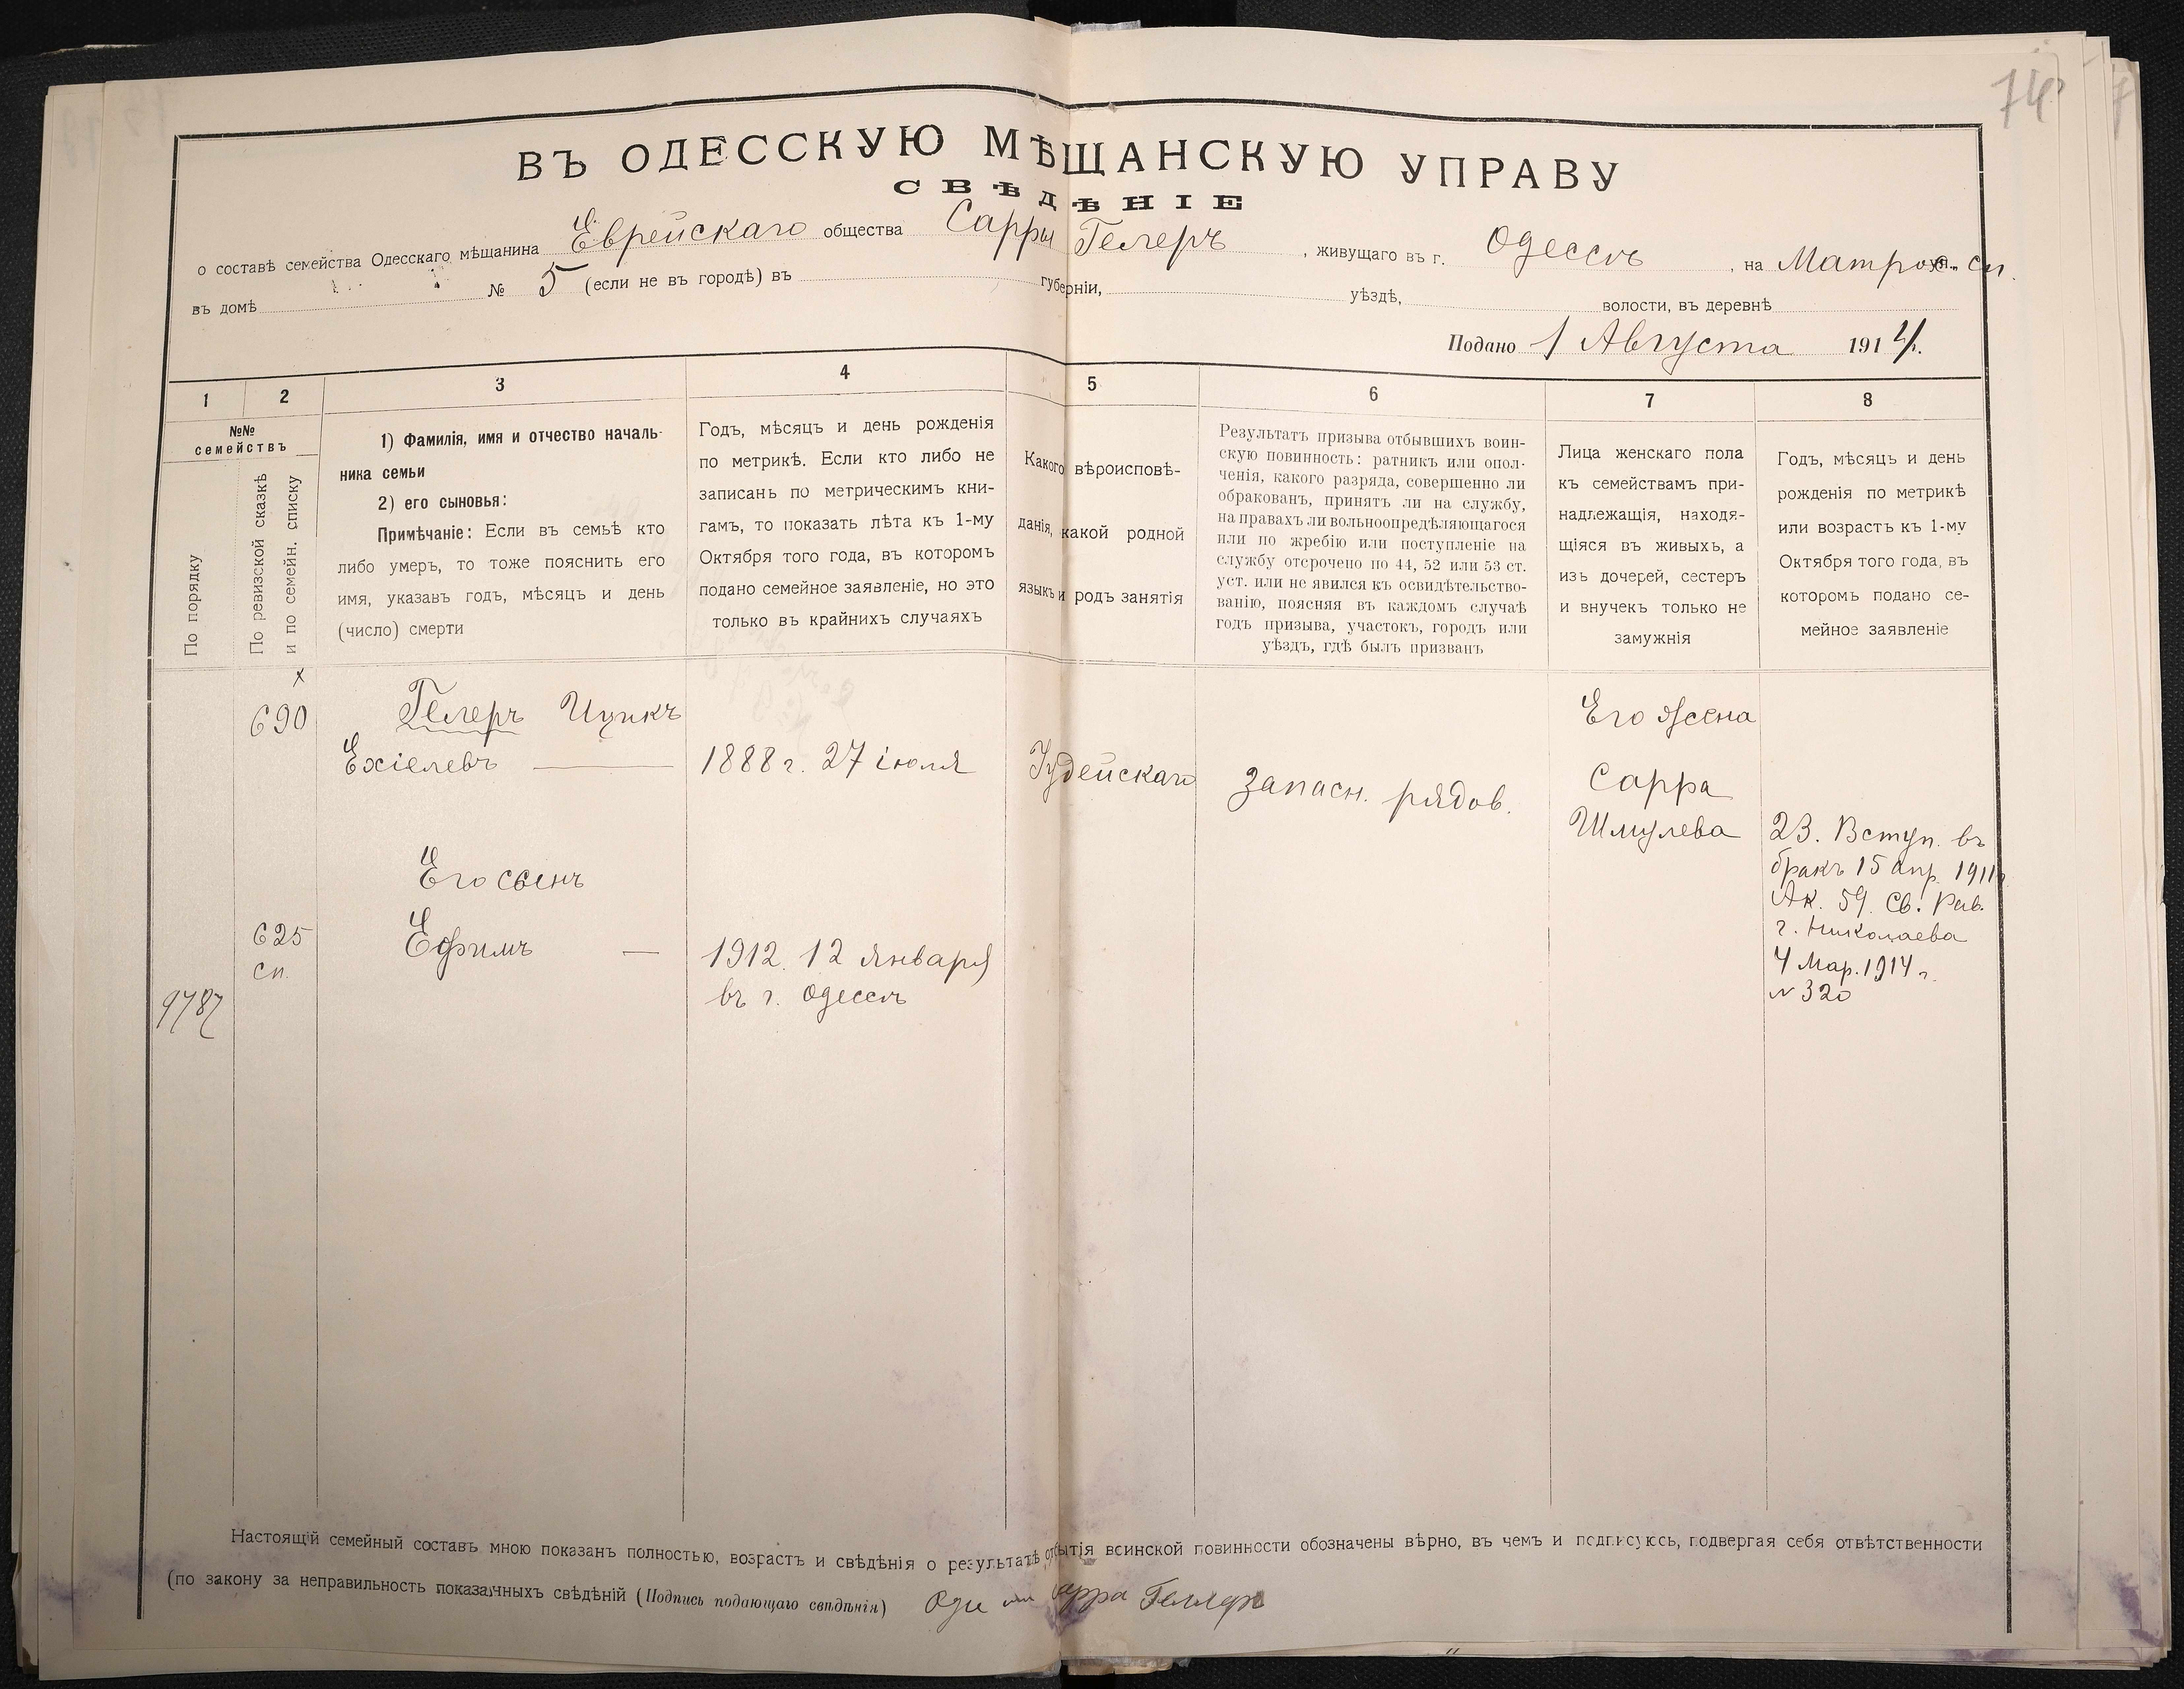 74
ВЪ ОДЕССКУЮ МѢЩАНСКУЮ УПРАВУ
СВѢДѢНІЕ
о составѣ семейства Одесскаго мѣщанина Еврейскаго общества Сарры Гелеръ, живущаго въ г. Одессѣ, на Матросс. сп.
въ домѣ № 5 (если не въ городѣ) въ губерніи, уѣздѣ, волости, въ деревнѣ
Подано 1 Августа 1914 г.
1 2 3 4 5 6 7 8
№№
семействъ
По порядку
По ревизской сказкѣ
и по семейн. списку
1) Фамилія, имя и отчество началь-
ника семьи
2) его сыновья:
Примѣчаніе: Если въ семьѣ кто
либо умеръ, то тоже пояснить его
имя, указавъ годъ, мѣсяцъ и день
(число) смерти
Годъ, мѣсяцъ и день рожденія
по метрикѣ. Если кто либо не
записанъ по метрическимъ кни-
гамъ, то показать лѣта къ 1-му
Октября того года, въ которомъ
подано семейное заявленіе, но это
только въ крайнихъ случаяхъ
Какого вѣроисповѣ-
данія, какой родной
языкъ и родъ занятія
Результатъ призыва отбывшихъ воин-
скую повинность: ратникъ или опол-
ченія, какого разряда, совершенно ли
обракованъ, принятъ ли на службу,
на правахъ ли вольноопредѣляющагося
или по жребію или поступленіе на
службу отсрочено по 44, 52 или 53 ст.
уст. или не явился къ освидѣтельство-
ванію, поясняя въ каждомъ случаѣ
годъ призыва, участокъ, городъ или
уѣздъ, гдѣ былъ призванъ
Лица женскаго пола
къ семействамъ при-
надлежащія, находя-
щіяся въ живыхъ, а
изъ дочерей, сестеръ
и внучекъ только не
замужнія
Годъ, мѣсяцъ и день
рожденія по метрикѣ
или возрастъ къ 1-му
Октября того года, въ
которомъ подано се-
мейное заявленіе
х
690
Гелеръ Ицикъ
Ехіелевъ
1888 г. 27 іюля
Іудейскаго
Запасн. рядов.
Его жена
Сарра
Шмулева
23. Вступ. въ
бракъ 15 апр. 1911 г.
Ак. 59. Св. Рав.
г. Николаева
4 Мар. 1914 г.
№ 320
Его сынъ
625
сп.
Ефимъ
1912. 12 Января
въ г. Одессѣ
9787
Настоящій семейный составъ мною показанъ полностью, возрастъ и свѣдѣнія о результатѣ отбытія воинской повинности обозначены вѣрно, въ чемъ и подписуюсь, подвергая себя отвѣтственности
(по закону за неправильность показанныхъ свѣдѣній (Подпись подающаго свѣдѣнія) Сарра Геллер